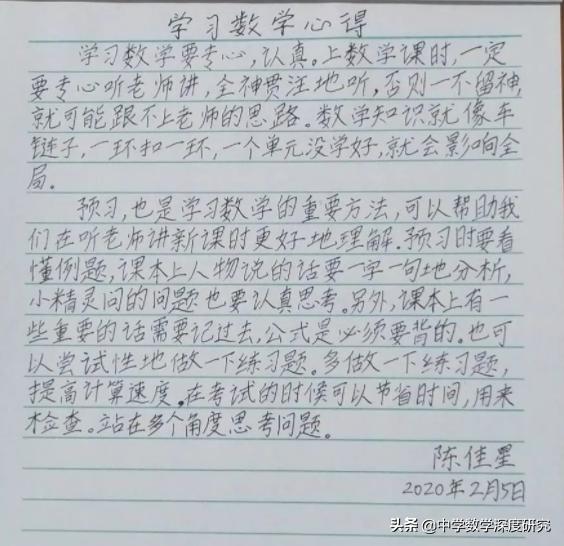 学习数学心得
学习数学要专心,认真。上数学课时,一定
要专心听老师讲,全神贯注地听,否则一不留神,
就可能跟不上老师的思路。数学知识就像车
链子,一环扣一环,一个单元没学好,就会影响全
局.
预习,也是学习数学的重要方法,可以帮助我
们在听老师讲新课时更好地理解.预习时要看
懂例题,课本上人物说的话要一字一句地分析,
小精灵问的问题也要认真思考。另外,课本上有一
些重要的话需要记过去,公式是必须要背的。也可
以尝试性地做一下练习题。多做一下练习题,
提高计算速度。在考试的时候可以节省时间,用来
检查。站在多个角度思考问题。
陈佳星
2020年2月5日
头条@中学数学深度研究